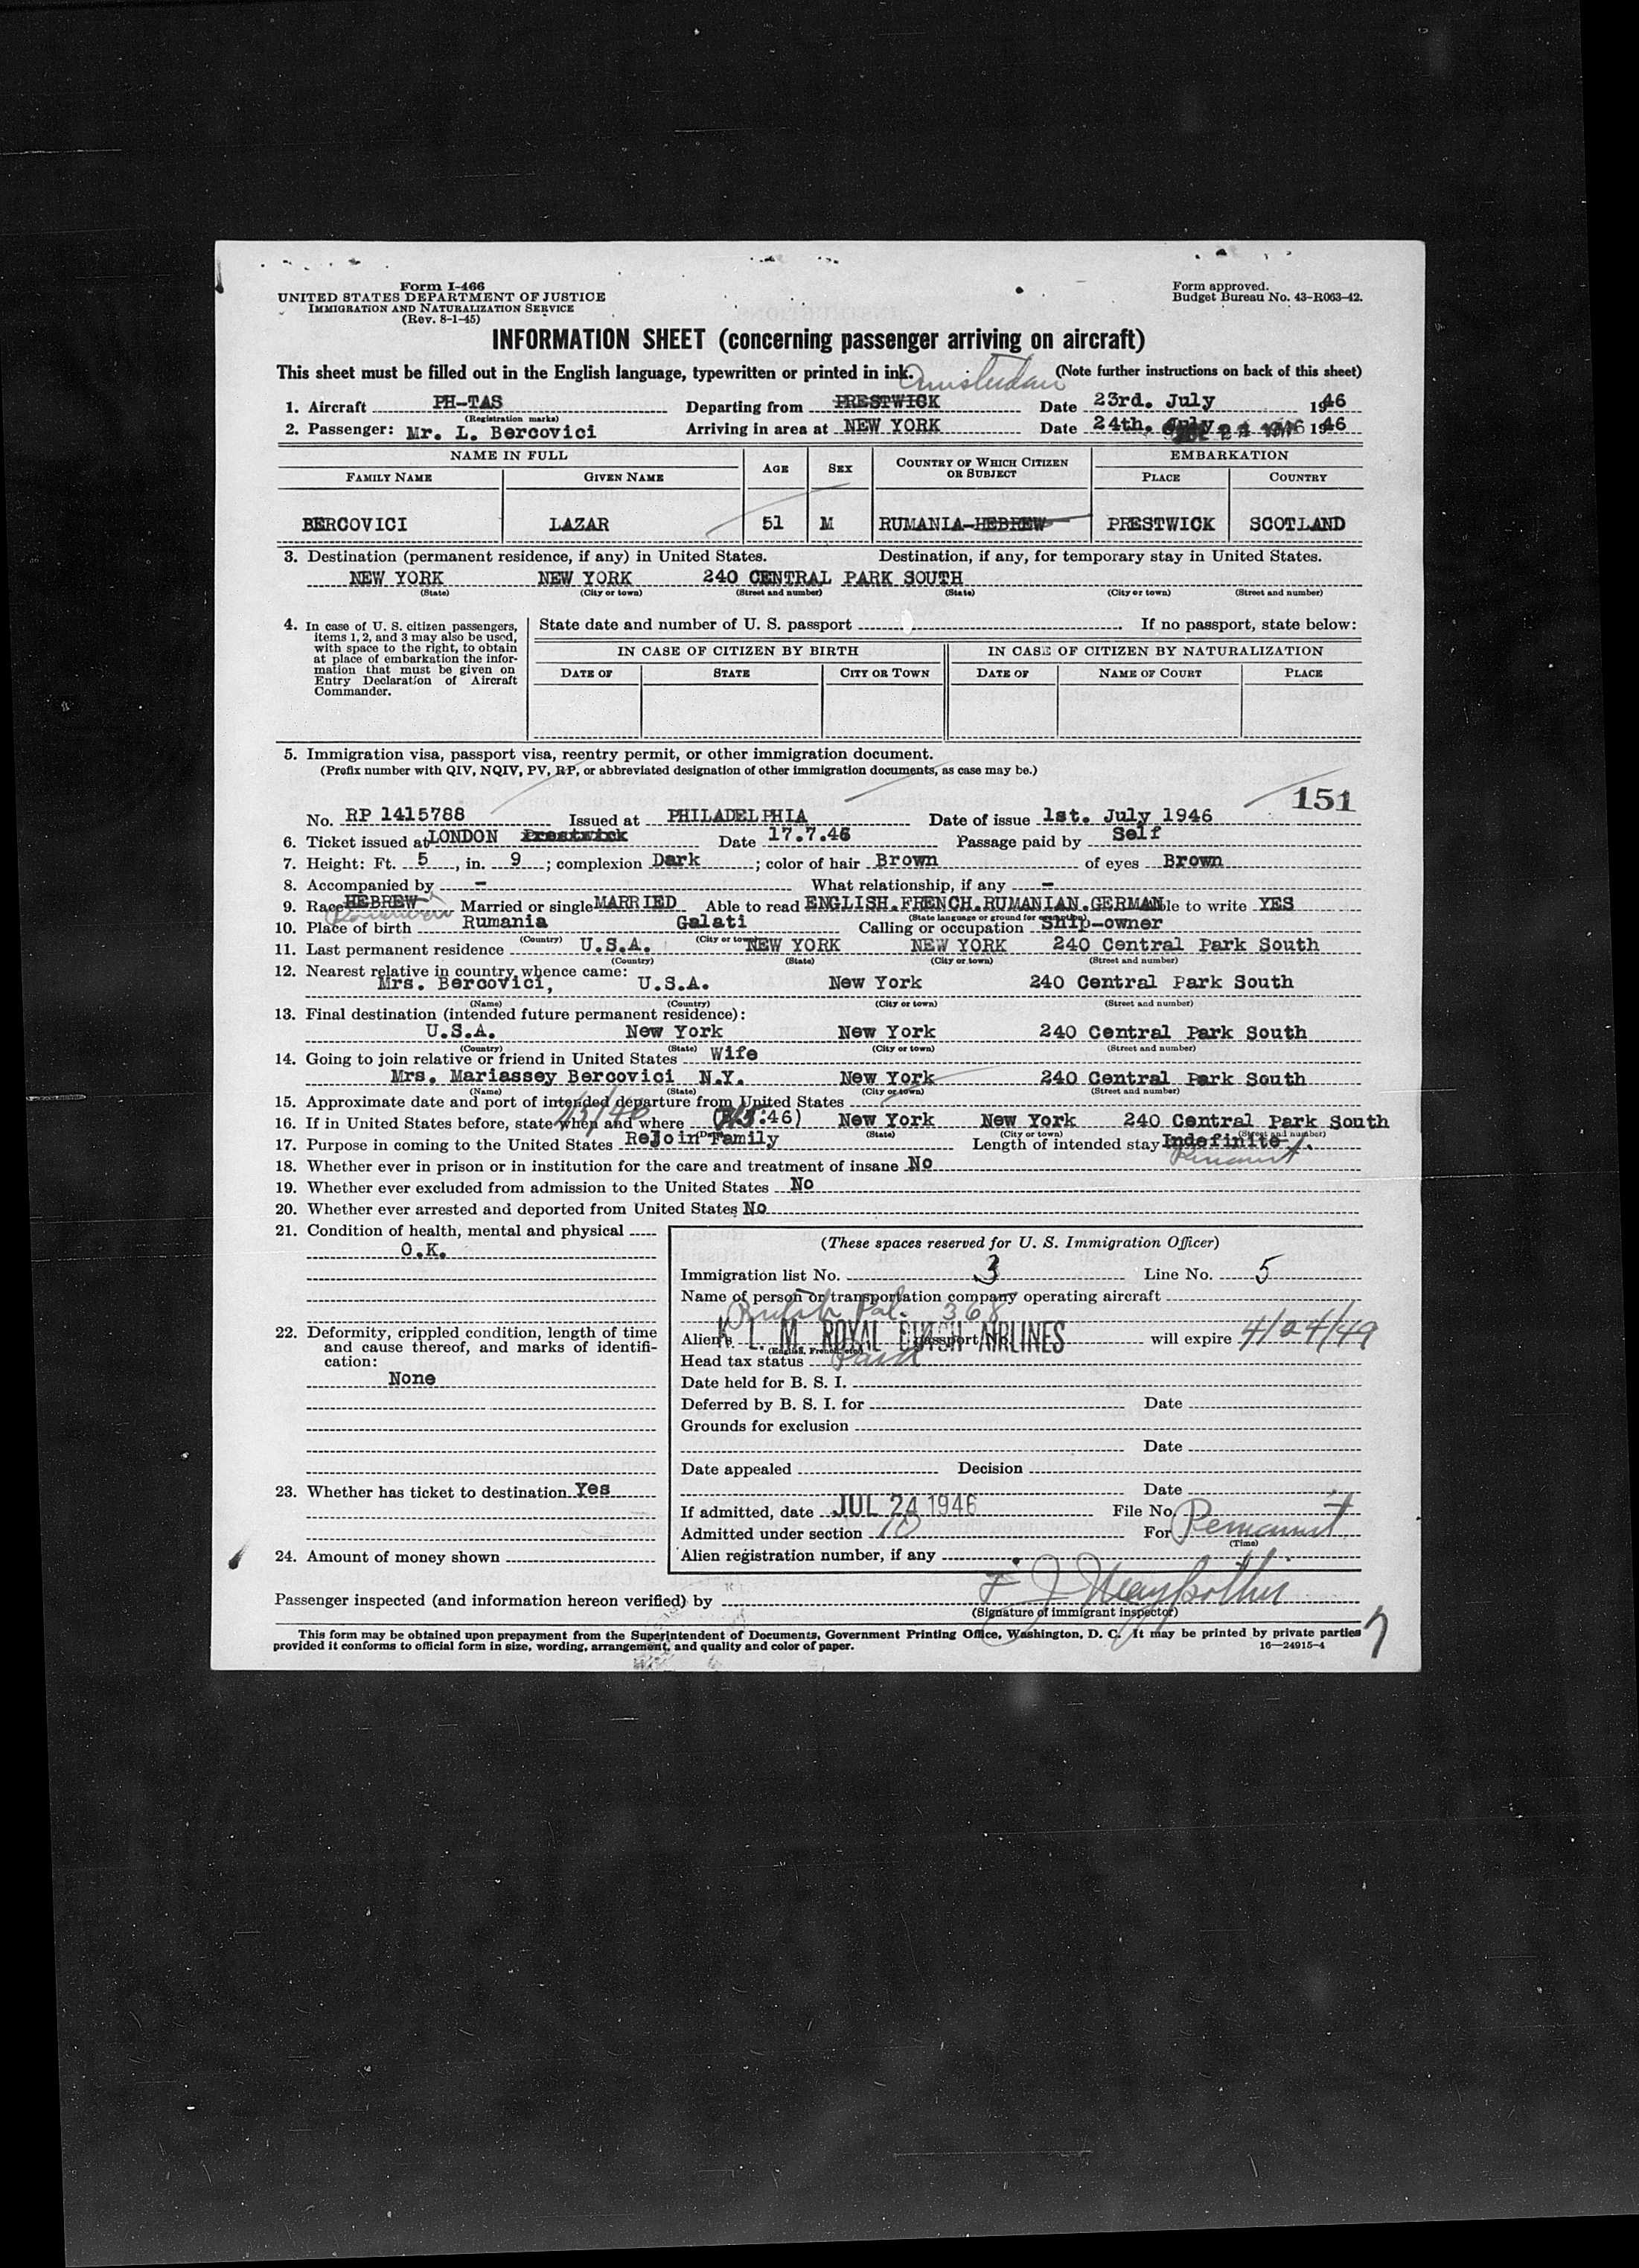 Form I-466
UNITED STATES DEPARTMENT OF JUSTICE
IMMIGRATION AND NATURALIZATION SERVICE
(Rev. 8-1-45)
Form approved.
Budget Bureau No. 43-R063-42.
INFORMATION SHEET (concerning passenger arriving on aircraft)
This sheet must be filled out in the English language, typewritten or printed in ink. (Note further instructions on back of this sheet)
Amsterdam
1. Aircraft PH-TAS Departing from PRESTWICK Date 23rd. July 1946
(Registration marks)
2. Passenger: Mr. L. Bercovici Arriving in area at NEW YORK Date 24th. July 1946
NAME IN FULL AGE SEX COUNTRY OF WHICH CITIZEN OR SUBJECT EMBARKATION
FAMILY NAME GIVEN NAME PLACE COUNTRY
BERCOVICI LAZAR 51 M RUMANIA-HEBREW PRESTWICK SCOTLAND
3. Destination (permanent residence, if any) in United States. Destination, if any, for temporary stay in United States.
NEW YORK NEW YORK 240 CENTRAL PARK SOUTH
(State) (City or town) (Street and number) (State) (City or town) (Street and number)
4. In case of U. S. citizen passengers, items 1, 2, and 3 may also be used, with space to the right, to obtain at place of embarkation the information that must be given on Entry Declaration of Aircraft Commander.
State date and number of U. S. passport If no passport, state below:
IN CASE OF CITIZEN BY BIRTH IN CASE OF CITIZEN BY NATURALIZATION
DATE OF STATE CITY OR TOWN DATE OF NAME OF COURT PLACE
5. Immigration visa, passport visa, reentry permit, or other immigration document.
(Prefix number with QIV, NQIV, PV, RP, or abbreviated designation of other immigration documents, as case may be.)
151
No. RP 1415788 Issued at PHILADELPHIA Date of issue 1st. July 1946
6. Ticket issued at LONDON Prestwick Date 17.7.46 Passage paid by Self
7. Height: Ft. 5, in. 9; complexion Dark; color of hair Brown of eyes Brown
8. Accompanied by - What relationship, if any -
9. Race HEBREW Married or single MARRIED Able to read ENGLISH.FRENCH.RUMANIAN.GERMAN Able to write YES
(State language or ground for exemption)
10. Place of birth Rumania Galati Calling or occupation Ship-owner
(Country) (City or town)
11. Last permanent residence U.S.A. NEW YORK NEW YORK 240 Central Park South
(Country) (State) (City or town) (Street and number)
12. Nearest relative in country whence came:
Mrs. Bercovici, U.S.A. New York 240 Central Park South
(Name) (Country) (City or town) (Street and number)
13. Final destination (intended future permanent residence):
U.S.A. New York New York 240 Central Park South
(Country) (State) (City or town) (Street and number)
14. Going to join relative or friend in United States Wife
Mrs. Mariassey Bercovici N.Y. New York 240 Central Park South
(Name) (State) (City or town) (Street and number)
15. Approximate date and port of intended departure from United States
16. If in United States before, state when and where New York New York 240 Central Park South
(Date) (State) (City or town) (Street and number)
17. Purpose in coming to the United States Rejoin Family Length of intended stay Indefinite.
Permanent
18. Whether ever in prison or in institution for the care and treatment of insane No
19. Whether ever excluded from admission to the United States No
20. Whether ever arrested and deported from United States No
21. Condition of health, mental and physical
O.K.
22. Deformity, crippled condition, length of time and cause thereof, and marks of identification:
None
23. Whether has ticket to destination Yes
24. Amount of money shown
(These spaces reserved for U. S. Immigration Officer)
Immigration list No. 3 Line No. 5
Name of person or transportation company operating aircraft
British Pal. 368
K. L. M. ROYAL DUTCH AIRLINES
Alien's passport No. will expire 4/24/49
(English, French, etc.)
Head tax status Paid
Date held for B. S. I.
Deferred by B. S. I. for Date
Grounds for exclusion
Date
Date appealed Decision
Date
If admitted, date JUL 24 1946 File No.
Admitted under section 10 For Permanent
(Time)
Alien registration number, if any
Passenger inspected (and information hereon verified) by
(Signature of immigrant inspector)
This form may be obtained upon prepayment from the Superintendent of Documents, Government Printing Office, Washington, D. C. It may be printed by private parties
provided it conforms to official form in size, wording, arrangement, and quality and color of paper. 16—24915-4